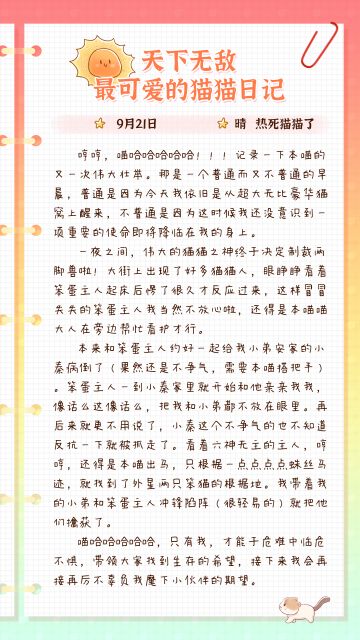 天下无敌
最可爱的猫猫日记
9月21日 晴 热死猫猫了
哼哼，喵哈哈哈哈哈！！！记录一下本喵的
又一次伟大壮举。那是一个普通而又不普通的早
晨，普通是因为今天我依旧是从超大无比豪华猫
窝上醒来，不普通是因为这时候我还没意识到一
项重要的使命即将降临在我的身上。
一夜之间，伟大的猫猫之神终于决定制裁两
脚兽啦！大街上出现了好多猫猫人，眼睁睁看着
笨蛋主人起床后愣了很久才反应过来，这样冒冒
失失的笨蛋主人我当然不放心啦，还得是本喵喵
大人在旁边帮忙看护才行。
本来和笨蛋主人约好一起给我小弟安家的小
秦病倒了（果然还是不争气，需要本喵搭把手）
。笨蛋主人一到小秦家里就开始和他亲亲我我，
像话么这像话么，把我和小弟都不放在眼里。再
后来就更不用说了，小秦这个不争气的也不知道
反抗一下就被抓走了。看着六神无主的主人，哼
哼，还得是本喵出马，只根据一点点点点蛛丝马
迹，就找到了外星两只笨猫的根据地。我带着我
的小弟和笨蛋主人冲锋陷阵（很轻易的）就把他
们擒获了。
喵哈哈哈哈哈，只有我，才能于危难中临危
不惧，带领大家找到生存的希望，接下来我会再
接再厉不辜负我麾下小伙伴的期望。